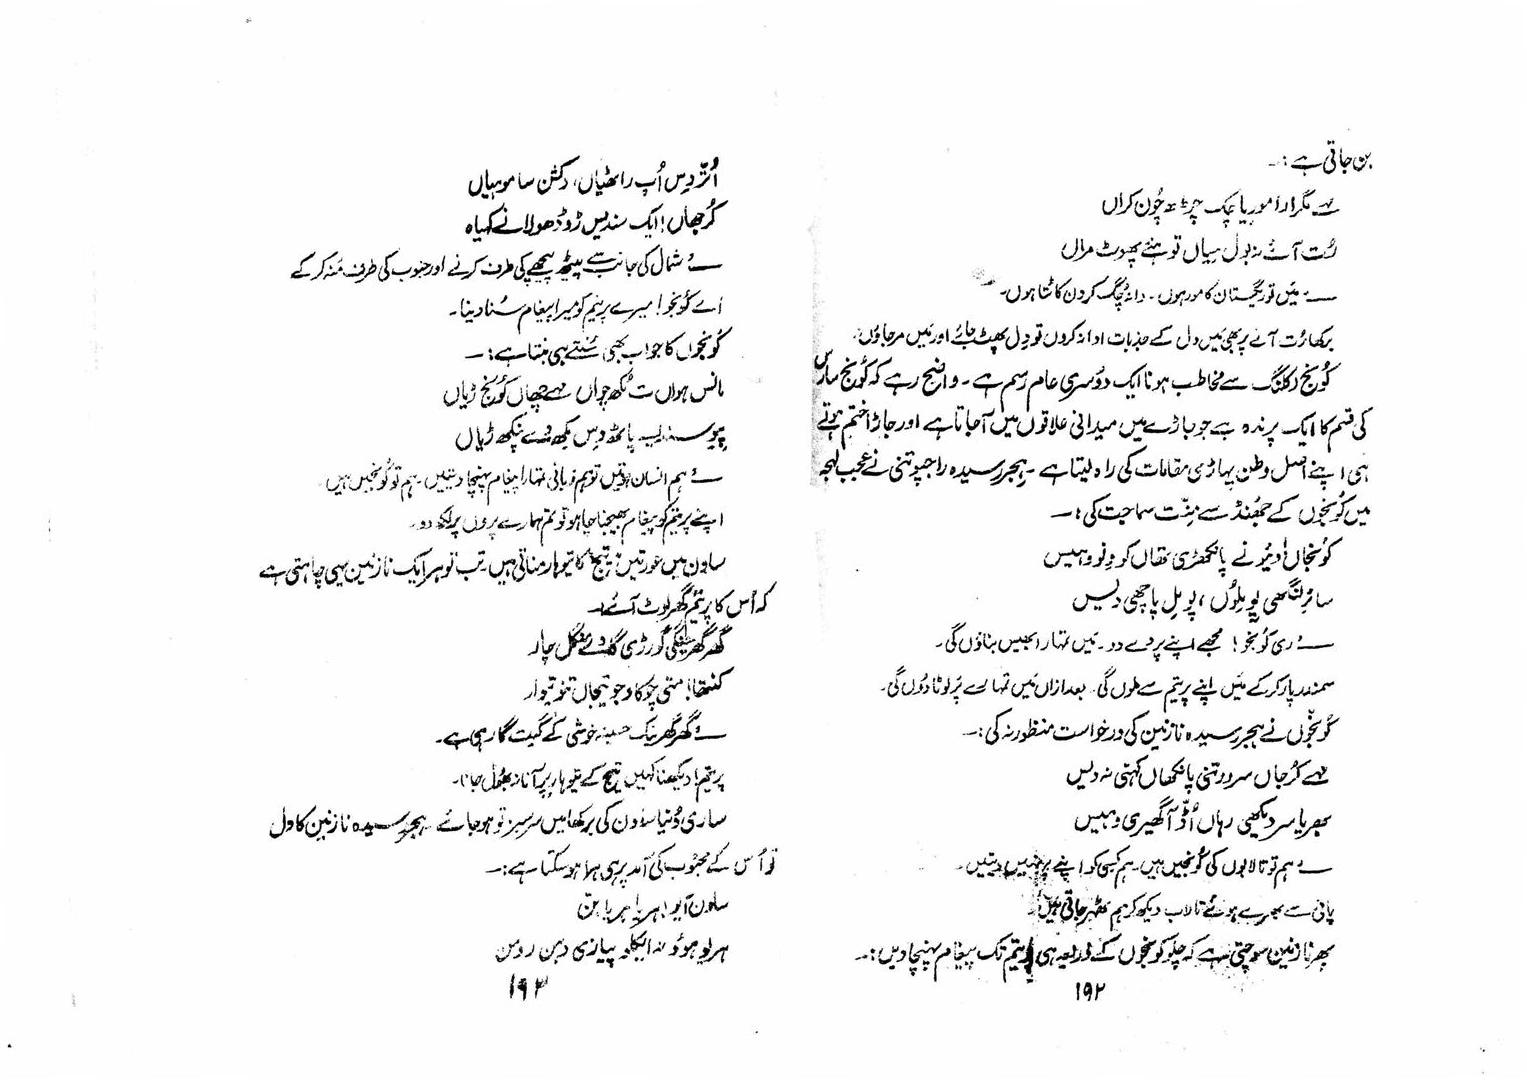 بن جاتی ہے :۔
ہے مگرا را موریا چُک چڑھ چُون کراں
رُت آئے نہ بول ہیاں تو ہئے پھوٹ مراں
ــــ: مَیں تو ریگستان کا مور ہوں۔ دانہ چُگ کر دن کاٹتا ہوں۔
برکھا رُت آنے پر بھی مَیں دل کے جذبات ادا نہ کروں تو دِل پھٹ جائے اور مَیں مر جاؤں۔
کُونج رکلنگ سے مخاطب ہونا ایک دوسری عام رسم ہے۔ واضح رہے کہ کُونج سارس
کی قسم کا ایک پرندہ ہے جو جاڑے میں میدانی علاقوں میں آ جاتا ہے اور جاڑا ختم ہوتے
ہی اپنے اصل وطن پہاڑی مقامات کی راہ لیتا ہے۔ ہجر رسیدہ راجپوتنی نے عجب لہجہ
میں کُونجوں کے جھنڈ سے منّت سماجت کی :۔
کُونجاں! دیُو نے پانکھڑی تھاں کو ونو وہیس
سائر لنگھی پو ملوُں، پو مل پاچھی دیس
ــــ: ری کُونجو! مجھے اپنے پر دے دو۔ مَیں تمہارا بھیس بناؤں گی۔
سمندر پار کر کے مَیں اپنے پریتم سے ملوں گی۔ بعد ازاں مَیں تمہارے پَر لوٹا دوں گی۔
کُونجوں نے ہجر رسیدہ نازنین کی درخواست منظور نہ کی :۔
ہے کُرجاں سرور تنی پانکھاں کہنی نہ دیس
بھریا سر دیکھی رہاں اُڈ آگھیری وہیس
ــــ: ہم تو تالابوں کی کُونجیں ہیں۔ ہم کسی کو اپنے پر نہیں دیتیں۔
پانی سے بھرے ہوئے تالاب دیکھ کر ہم ٹھہر جاتی ہیں۔
پھر نازنین سوچتی ہے کہ چلو کُونجوں کے ذریعہ ہی پریتم تک پیغام پہنچا دیں :۔
۱۹۲
اُتّر دِس اُپ راٹھیاں، دکشن ساموہیاں
کُرجھاں! ایک سندیس ڑو ڈھولا نے کہیاہ
ــــ: شمال کی جانب سے پیٹھ پیچھے کی طرف کرنے اور جنوب کی طرف مُنہ کر کے
اے کُونجو! میرے پریتم کو میرا پیغام سُنا دینا۔
کُونجوں کا جواب بھی سُنتے ہی بنتا ہے :۔
مانس ہواں ت مُکھ چواں مہے چھاں کُونج ڑیاں
پریو سندیسہ پاٹھ وِس لکھ دے پنکھ ڑیاں
ــــ: ہم انسان ہوتیں تو ہم زبانی تمہارا پیغام پہنچا دیتیں۔ ہم تو کُونجیں ہیں۔
اپنے پریتم کو پیغام بھیجنا چاہو تو تم ہمارے پروں پر لکھ دو۔
ساون میں عورتیں تیج کا تیوہار مناتی ہیں۔ تب تو ہر ایک نازنین یہی چاہتی ہے
کہ اُس کا پریتم گھر لوٹ آئے :۔
گھر گھر چنگی گورڑی گاوے منگل چار
کنتھا! متی چوکا وجو تیجاں تنو تیوار
ــــ: گھر گھر نیک حسینہ خوشی کے گیت گا رہی ہے۔
پریتم! دیکھنا کہیں تیج کے تیوہار پر آنا نہ بھُول جانا۔
ساری دُنیا ساون کی برکھا میں سرسبز تو ہو جائے ہجر رسیدہ نازنین کا دل
تو اُس کے محبُوب کی آمد پر ہی ہرا ہو سکتا ہے :۔
ساون آیو! ہریا ہریا بن
ہریو ہوؤ نہ ایکلو پیاری دہن رو من
۱۹۳